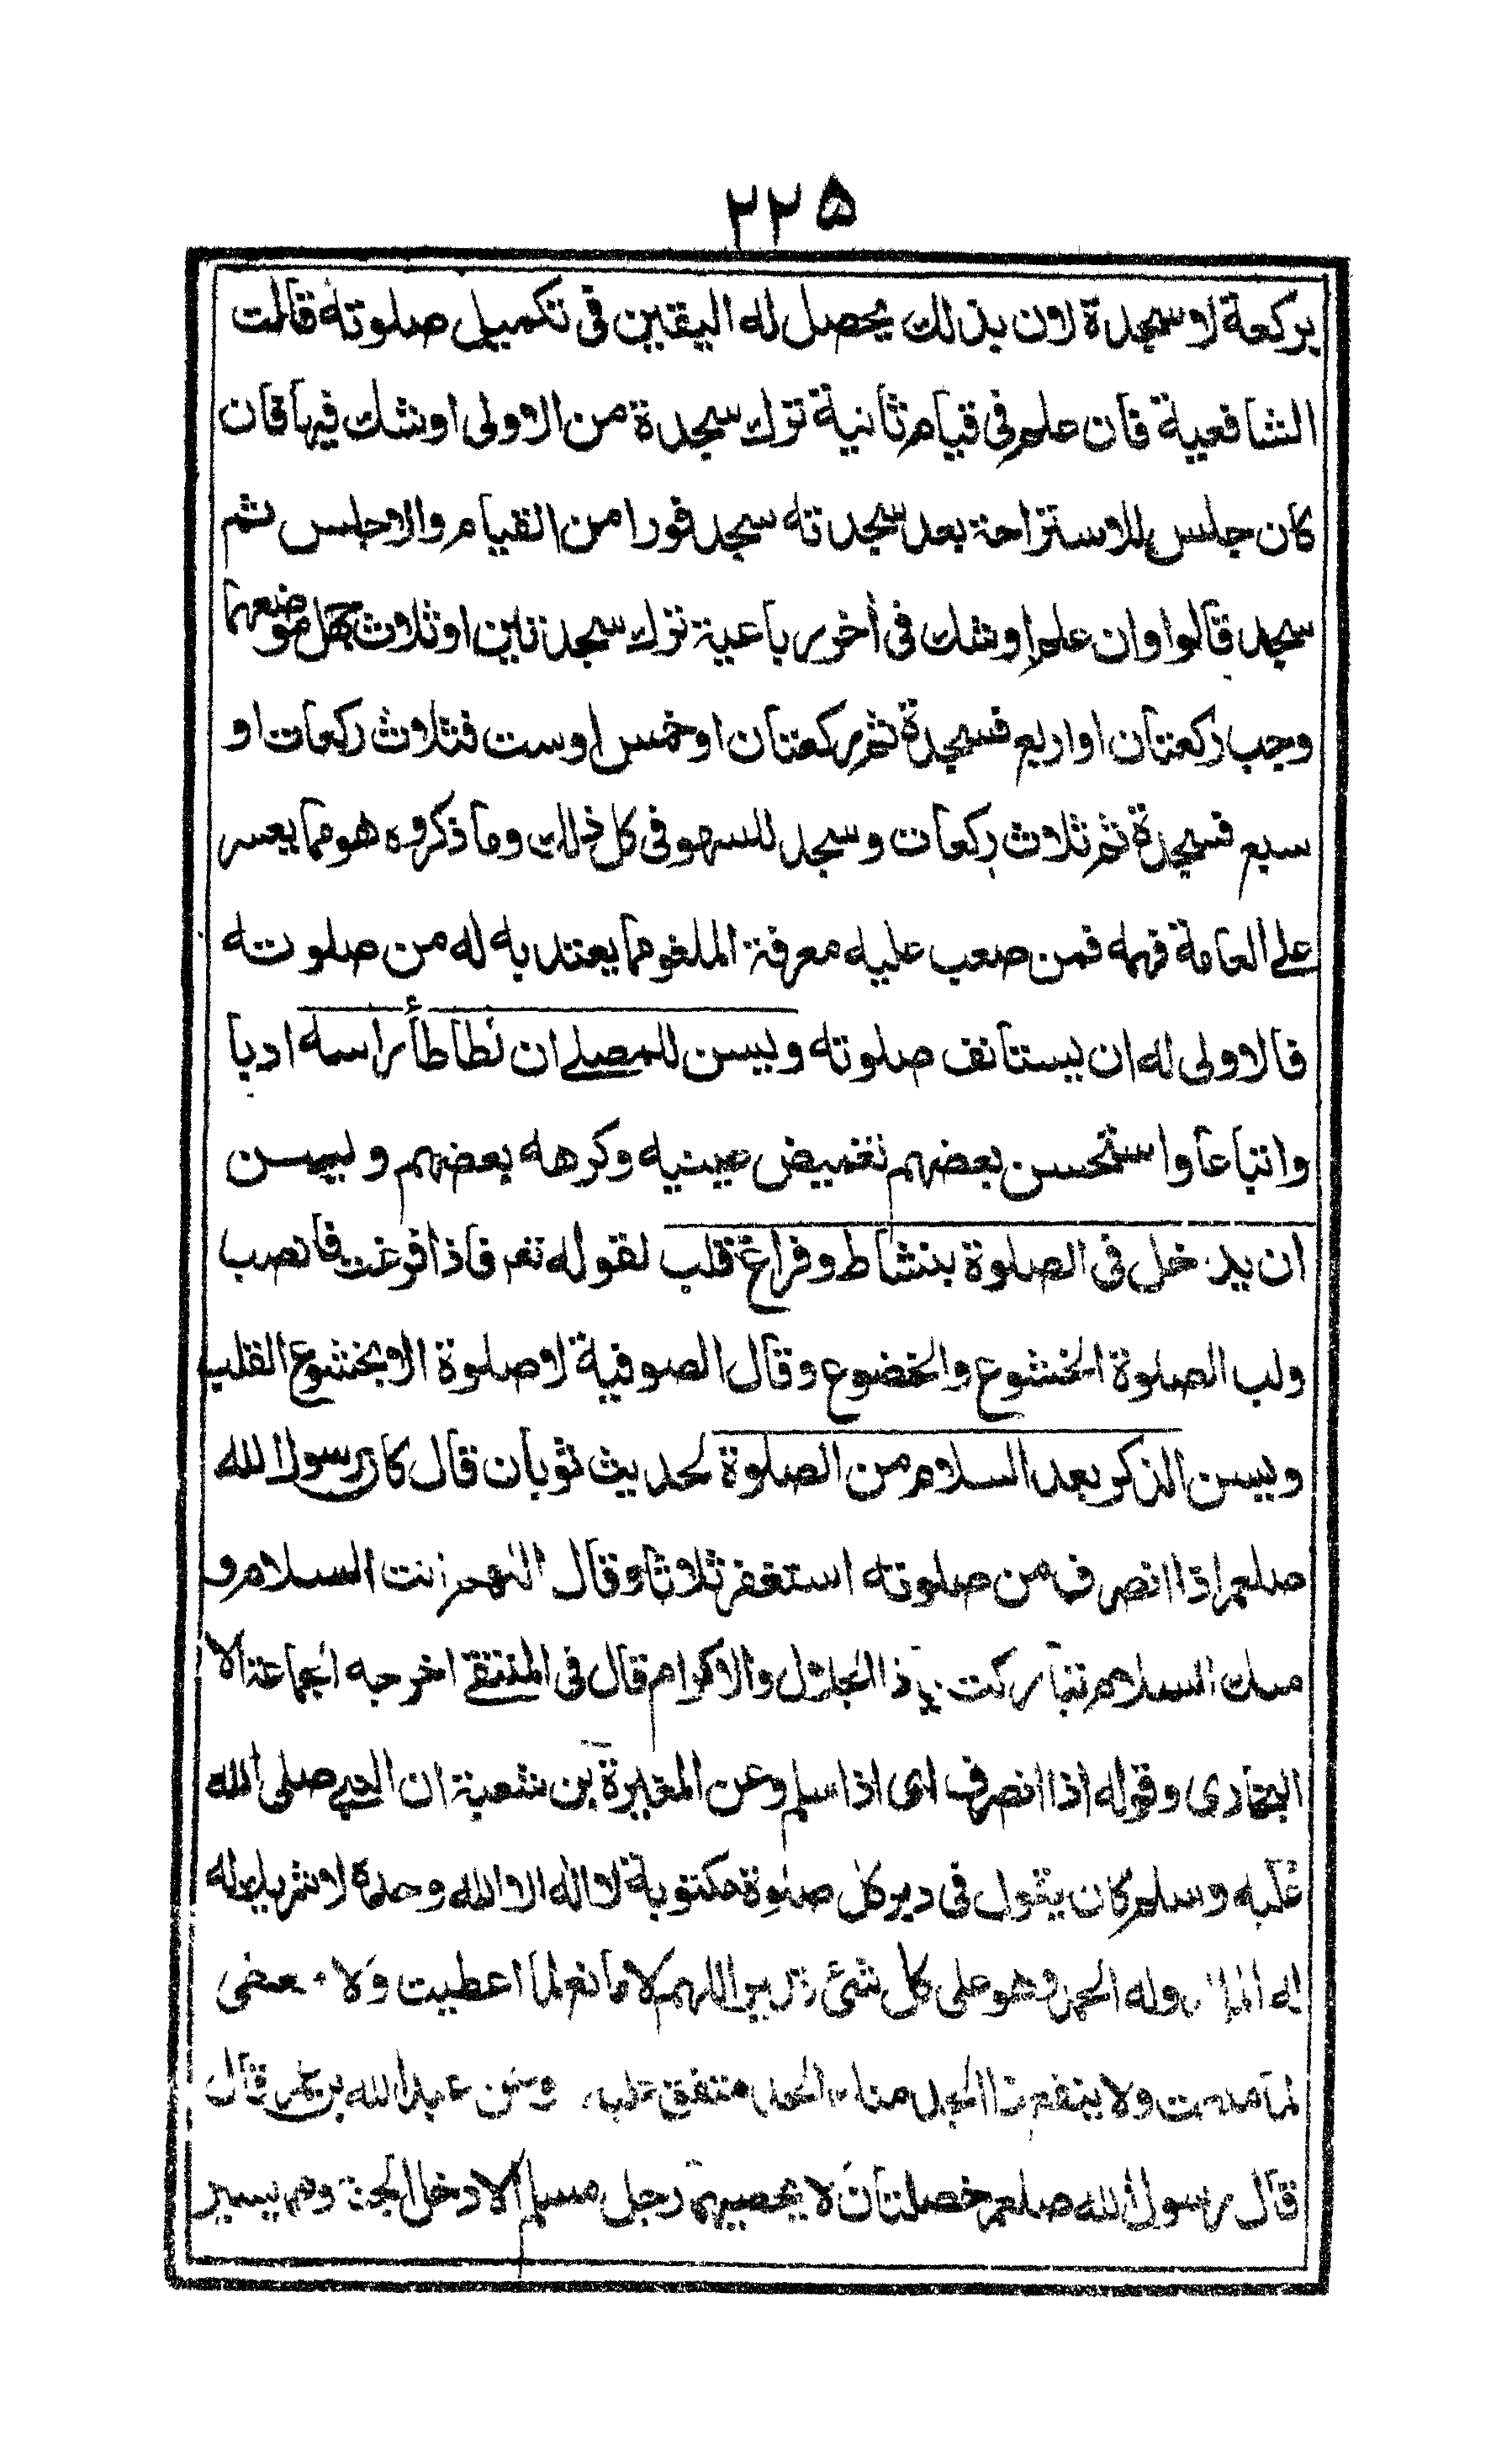 ٢٢٥
بركعة لا سجدة لان بذلك يحصل له اليقين فى تكميل صلوته قالت
الشافعية فان علم فى قيام ثانية ترك سجدة من الاولى او شك فيها فان
كان جلس للاستراحة بعد سجدته سجد فورا من القيام والا جلس ثم
سجد قالوا وان علم او شك فى أخر رباعية ترك سجدتين او ثلاث جهل موضعهما
وجب ركعتان او اربع فسجدة ثم ركعتان او خمس او ست فثلاث ركعات او
سبع فسجدة ثم ثلاث ركعات وسجد للسهو فى كل ذلك وما ذكروه هو مما يعسر
على العامة فهمه فمن صعب عليه معرفة الملغو مما يعتد به له من صلوته
فالاولى له ان يستانف صلوته ويسن للمصلے ان نطاطأ راسه ادبا
واتباعا واستحسن بعضهم تغميض عينيه وكرهه بعضهم ويسن
ان يدخل فى الصلوة بنشاط وفراغ قلب لقوله تعـ فاذا فرغت فانصب
ولب الصلوة الخشوع والخضوع وقال الصوفية لا صلوة الا بخشوع القلب
ويسن الذكر بعد السلام من الصلوة لحديث ثوبان قال كان رسول الله
صلعم اذا انصرف من صلوته استغفر ثلاثا وقال اللهم انت السلام و
منك السلام تباركت يا ذا الجلال والاكرام قال فى المنتقے اخرجه الجماعة الا
البخارى وقوله اذا انصرف اى اذا سلم وعن المغيرة بن شعبة ان النبے صلى الله
عليه وسلم كان يقول فى دبر كل صلوة مكتوبة لا اله الا الله وحده لا شريك له
له الملك وله الحمد وهو على كل شئ قدير اللهم لا مانع لما اعطيت ولا معطى
لما منعت ولا ينفع ذا الجد منك الجد متفق عليه وعن عبد الله بن عمر قال
قال رسول الله صلعم خصلتان لا يحصيهما رجل مسلم الا دخل الجنة وهما يسير